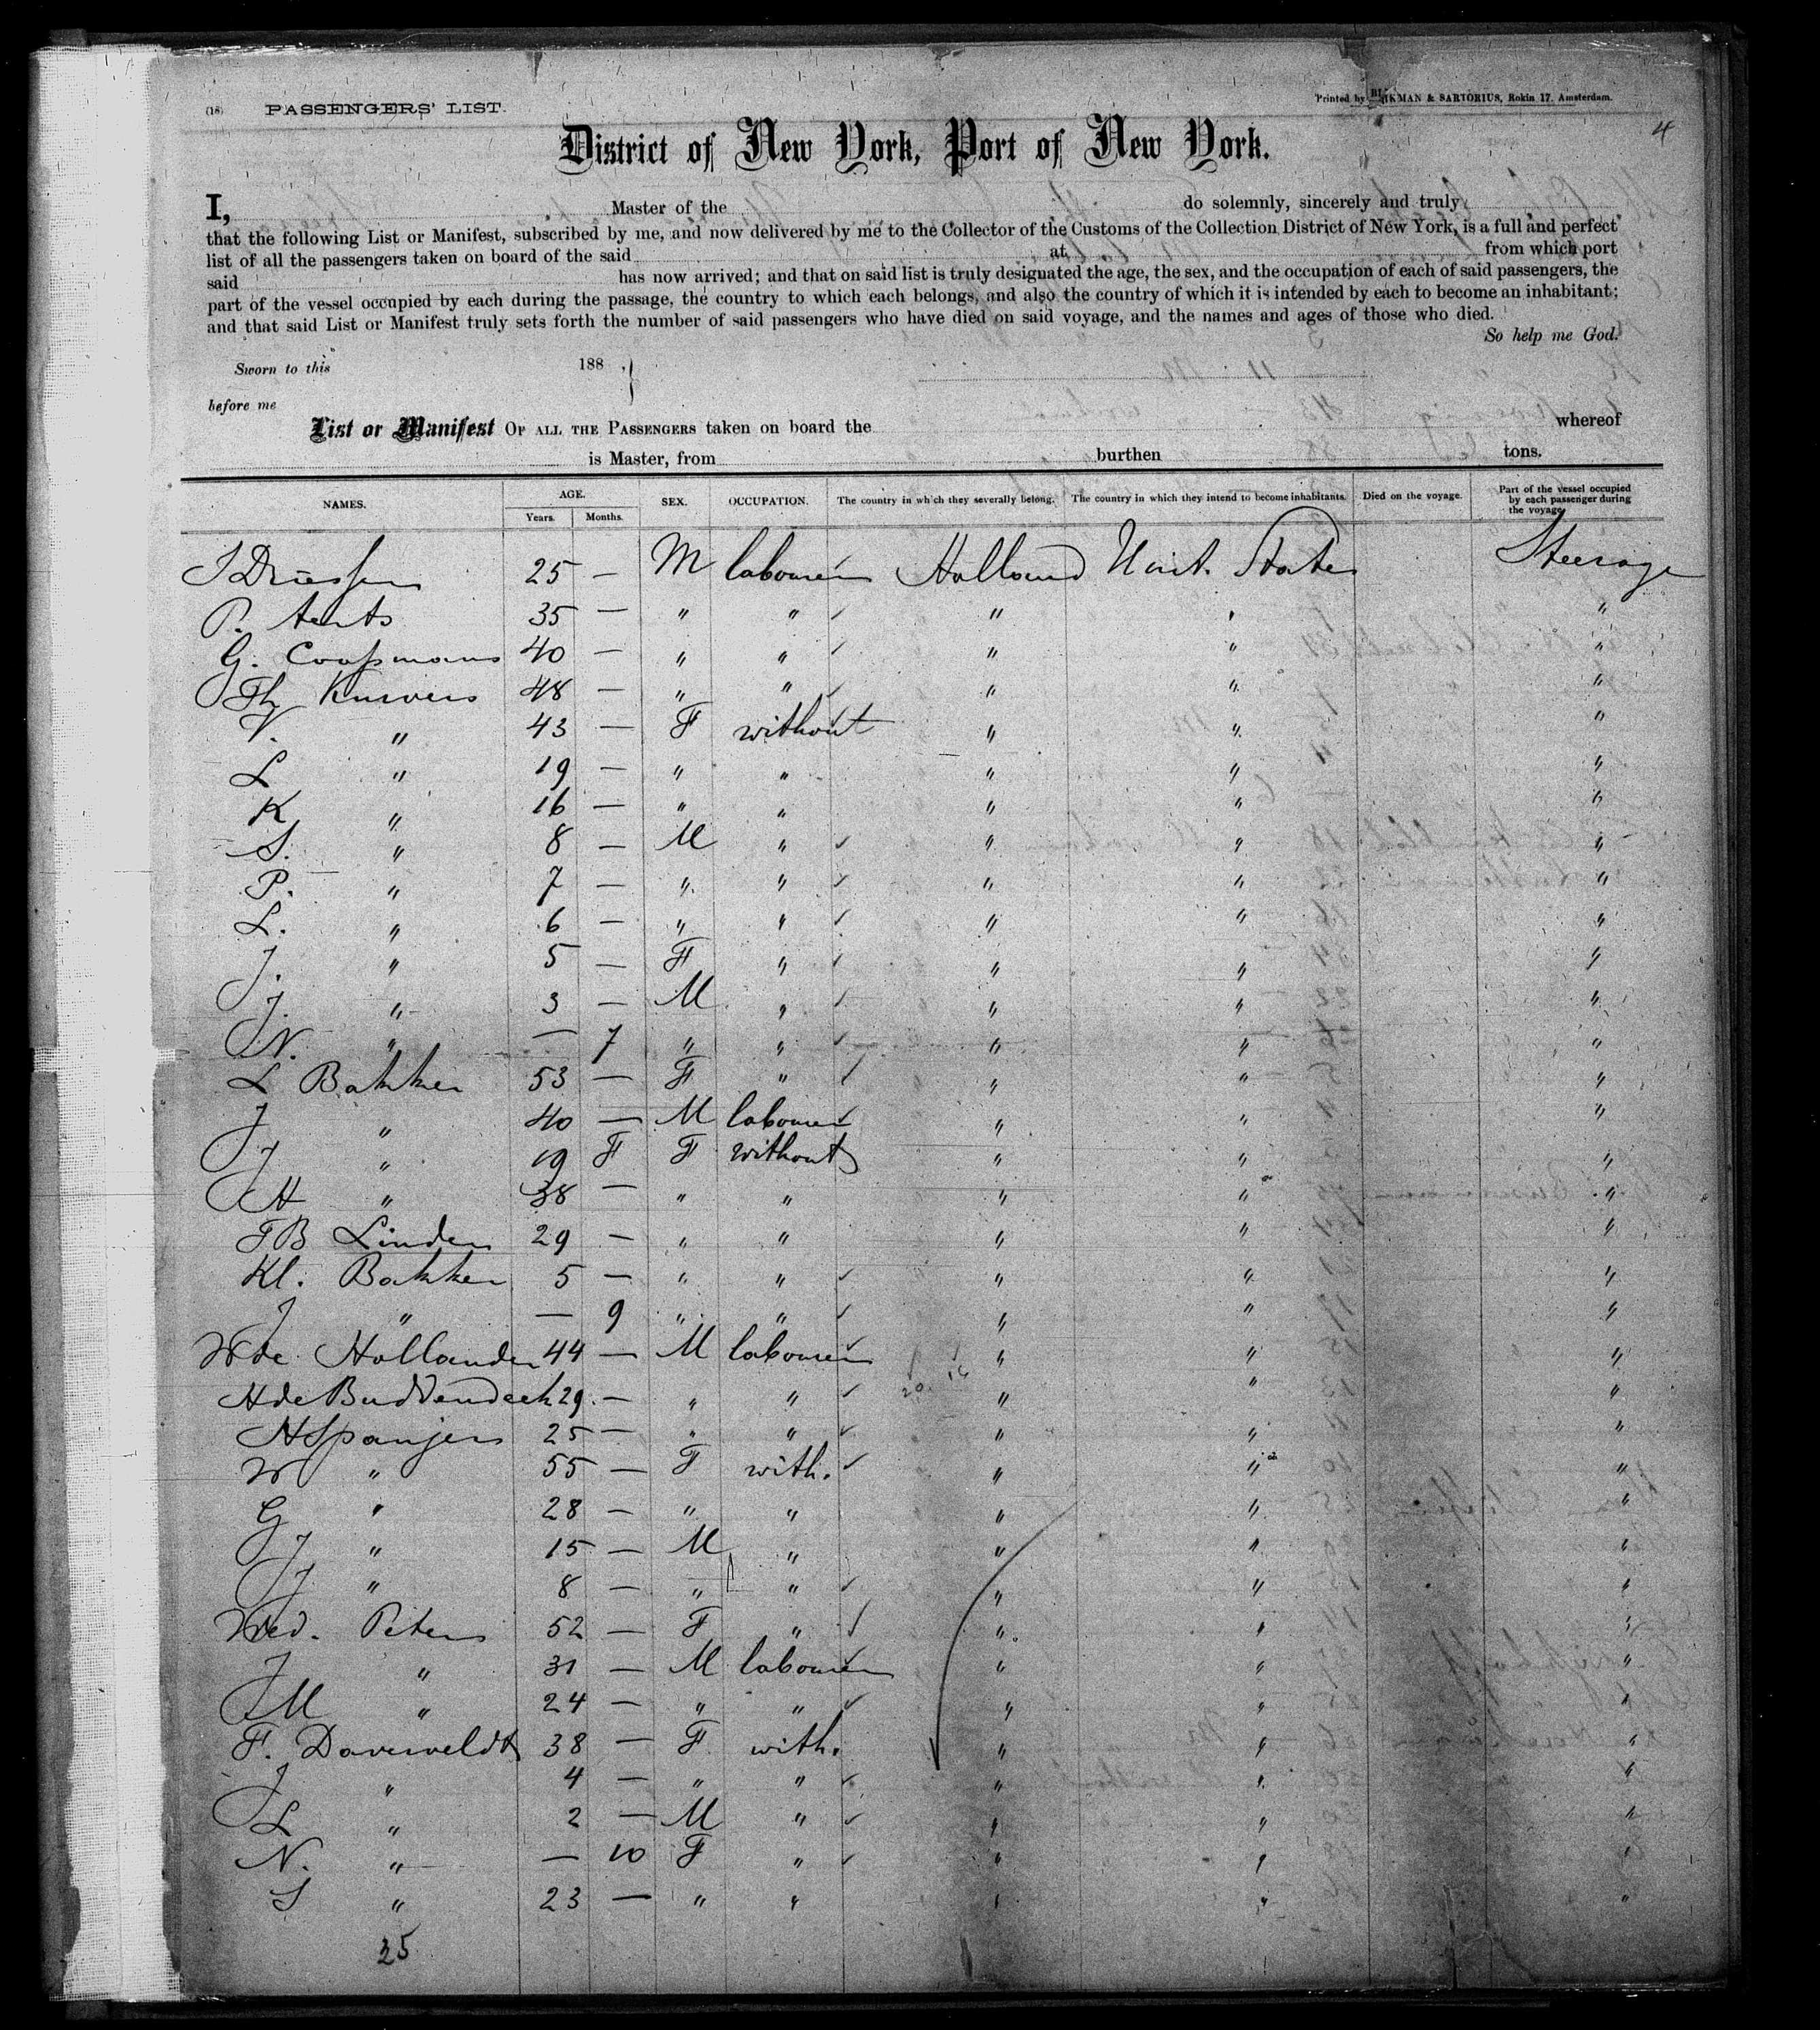 (18) PASSENGERS' LIST.
Printed by BLIKMAN & SARTORIUS, Rokin 17. Amsterdam.
4
District of New York, Port of New York.
I, Master of the do solemnly, sincerely and truly
that the following List or Manifest, subscribed by me, and now delivered by me to the Collector of the Customs of the Collection District of New York, is a full and perfect
list of all the passengers taken on board of the said at from which port
said has now arrived; and that on said list is truly designated the age, the sex, and the occupation of each of said passengers, the
part of the vessel occupied by each during the passage, the country to which each belongs, and also the country of which it is intended by each to become an inhabitant;
and that said List or Manifest truly sets forth the number of said passengers who have died on said voyage, and the names and ages of those who died.
So help me God.
Sworn to this 188 .
before me
List or Manifest OF ALL THE PASSENGERS taken on board the whereof
is Master, from burthen tons.
NAMES. AGE. Years. Months. SEX. OCCUPATION. The country in which they severally belong. The country in which they intend to become inhabitants. Died on the voyage. Part of the vessel occupied by each passenger during the voyage.
J Driessen 25 — M labourer Holland Unit. States Steerage
P. Aerts 35 — " " " " "
G. Coopmans 40 — " " " " "
Th Knivers 48 — " " " " "
V. " 43 — F without " " "
L " 19 — " " " " "
K " 16 — " " " " "
S. " 8 — M " " " "
P. " 7 — " " " " "
L. " 6 — " " " " "
J. " 5 — F " " " "
J. " 3 — M " " " "
N. " — 7 " " " " "
L Bakker 53 — F " " " "
J " 40 — M labourer " " "
J " 19 F F without " " "
H " 38 — " " " " "
FB Linden 29 — " " " " "
Kl. Bakker 5 — " " " " "
J " — 9 " " " " "
W de Hollander 44 — M labourer " " "
H de Buddendeck 29 — " " " " "
H Spanjers 25 — " " " " "
W " 55 — F with. " " "
G " 28 — " " " " "
J " 15 — M " " " "
J " 8 — " " " " "
Wed. Peters 52 — F " " " "
J " 31 — M labourer " " "
M " 24 — " " " " "
F. Daverveldt 38 — F with. " " "
J " 4 — " " " " "
L " 2 — M " " " "
N. " — 10 F " " " "
S " 23 — " " " " "
35